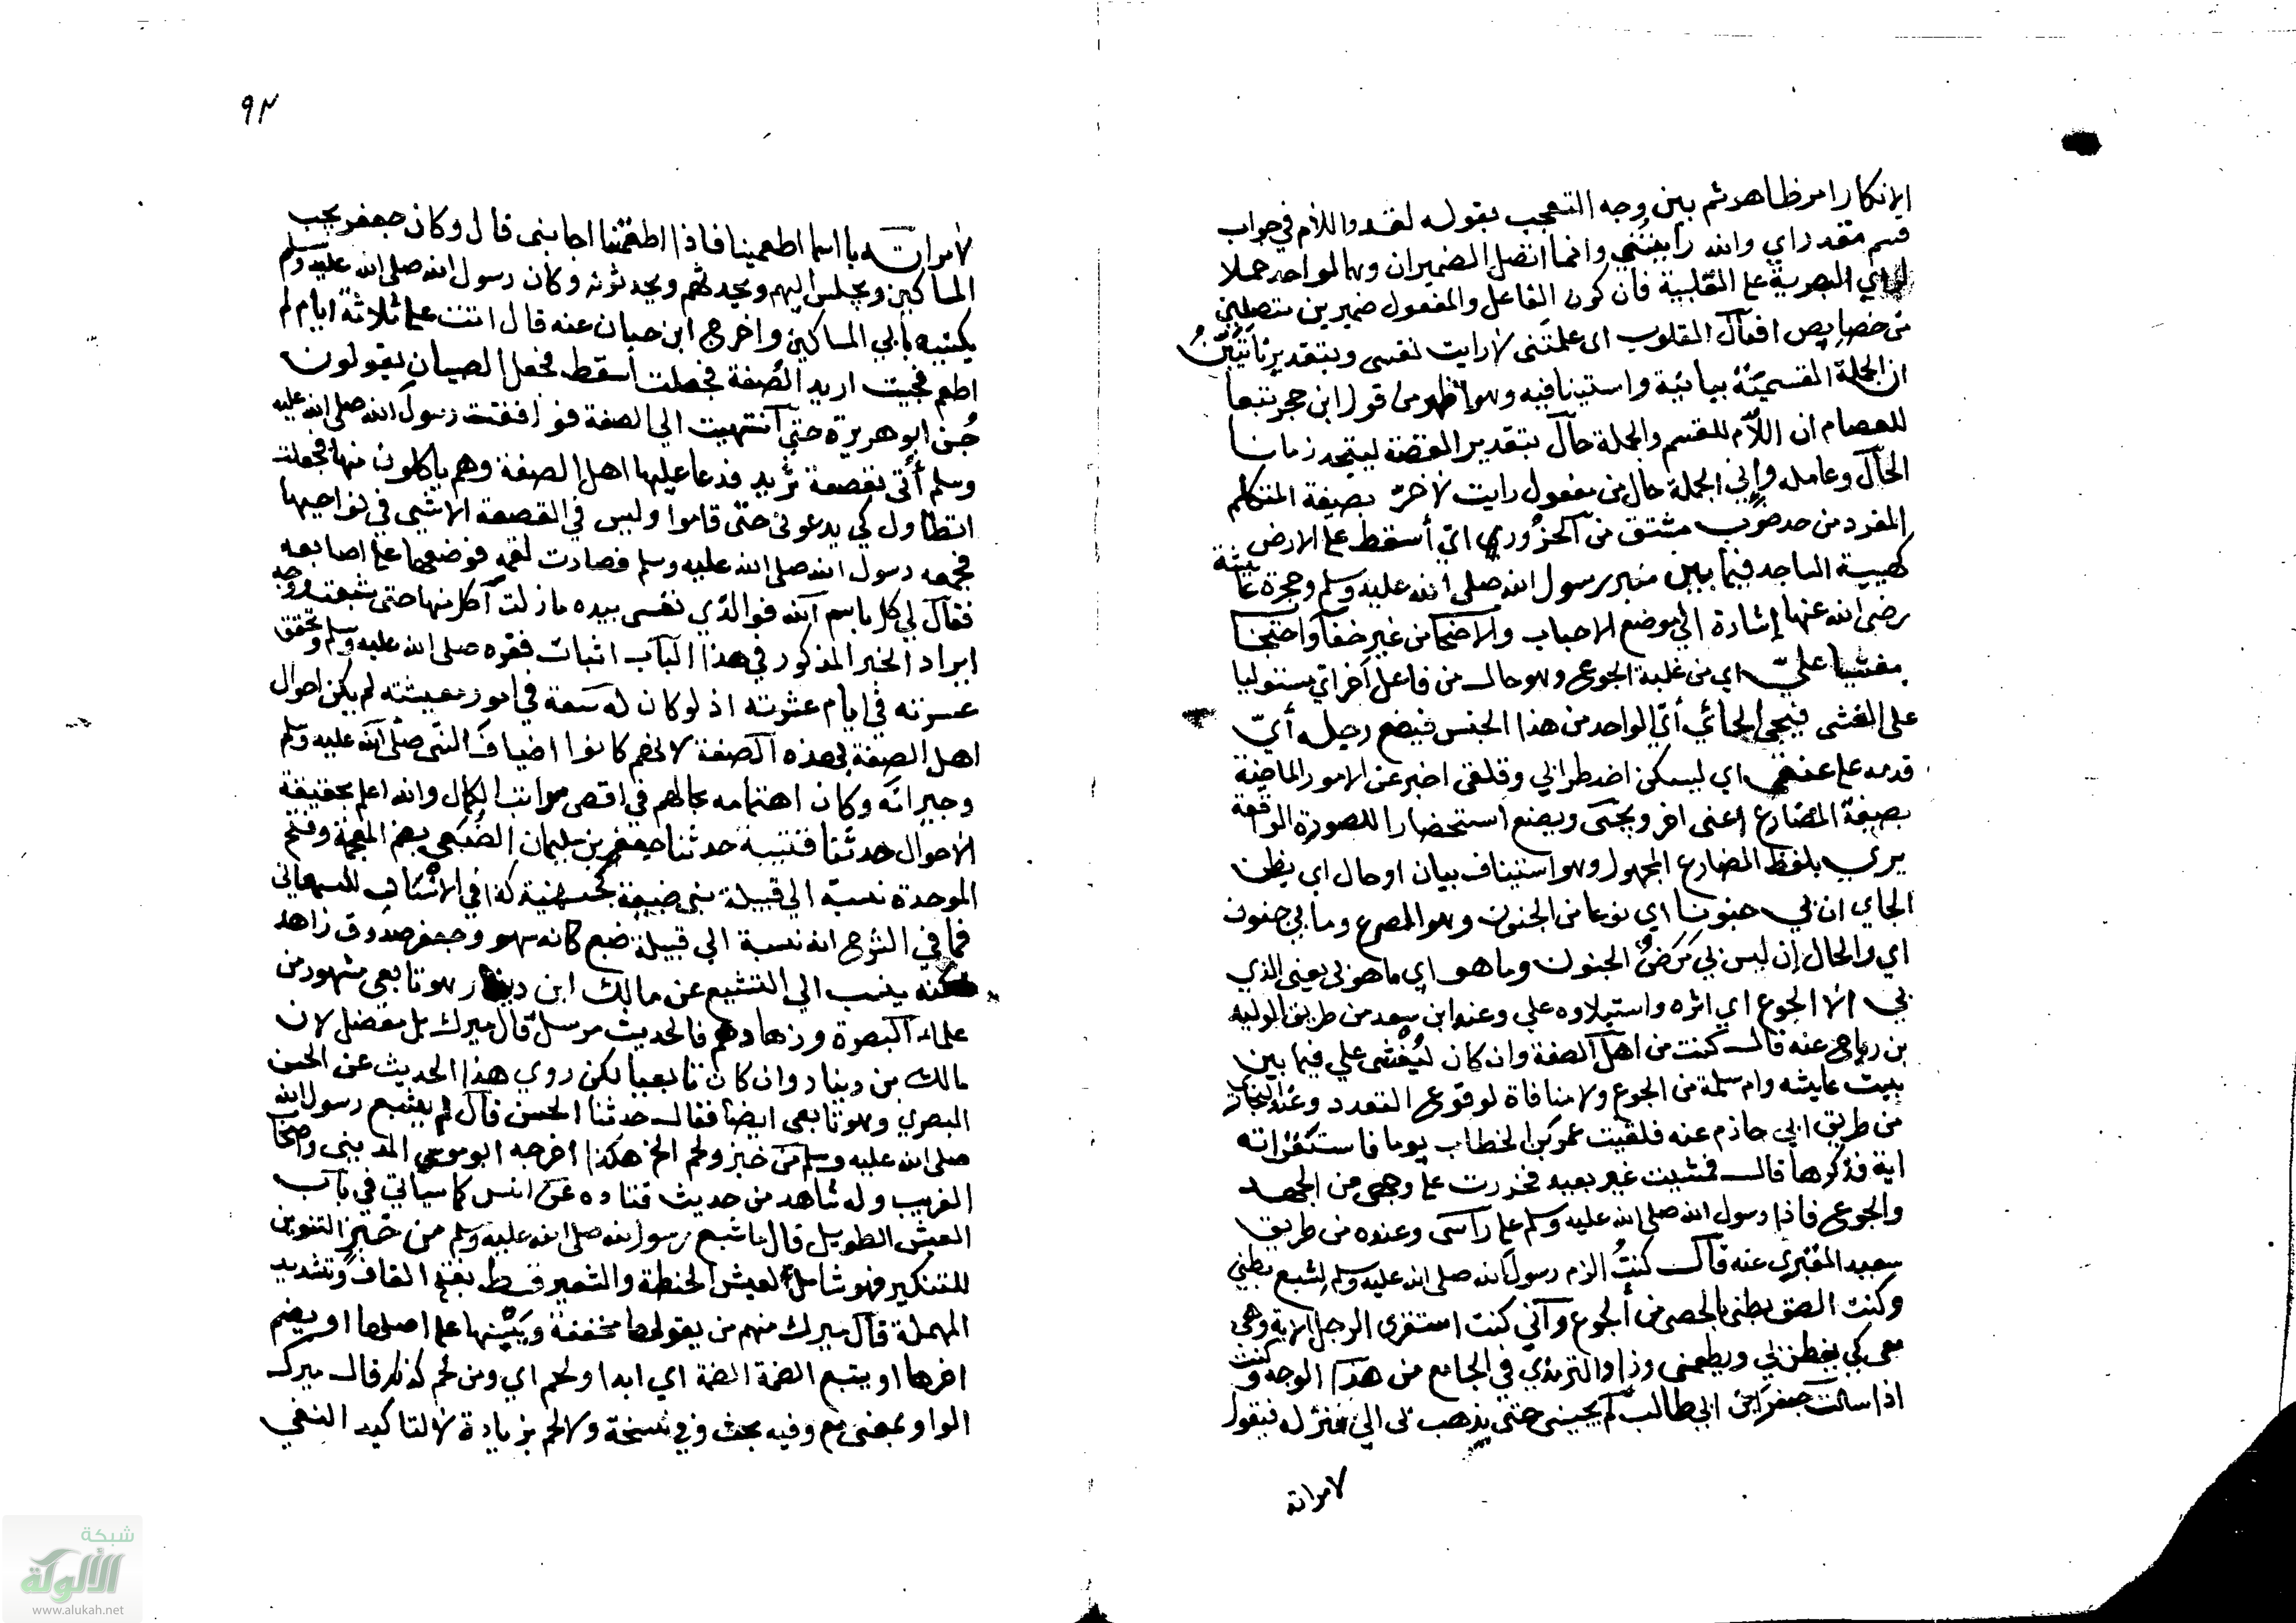 الانكار امر ظاهر ثم بين وجه التعجب بقوله لقد واللام في جواب
قسم مقدر اي والله رأيتُني وانما اتصل الضميران وهما لواحد حملا
لراي البصرية على القلبية فان كون الفاعل والمفعول ضميرين متصلين
من خصايص افعال القلوب اي علمتني لا رايت نفسي وبتقديرنا تبيّن
ان الجملة القسمية بيانية واستينافيه وهو اظهر من قول ابن حجر تبعا
للعصام ان اللام للقسم والجملة حال بتقدير القصة ليتحد زمانا
الحال وعامله واني الجملة حال من مفعول رايت لاخرّ بصيغة المتكلم
المفرد من حد ضرب مشتق من الخرور اي أسقط على الارض
كهيية الساجد فيما بين منبر رسول الله صلى الله عليه وسلم وحجرة عايشة
رضي الله عنها إشارة الي موضع الاحباب والاصحاب من غير خفآ واحتجاب
مغشيا عليّ اي من غلبة الجوع وهو حال من فاعل آخر اي مستوليا
على الغشي فيجي الجائي أيّ الواحد من هذا الجنس فيضع رجله أي
قدمه على عنقي اي ليسكن اضطرابي وقلقي اخبر عن الامور الماضية
بصيغة المضارع اعني اخر ويجئ ويضع استحضارا للصورة الواقعة
يري بلفظ المضارع المجهول وهو استيناف بيان او حال اي يظن
الجاي ان بي جنونا اي نوعا من الجنون وهو الصرع وما بي جنون
اي والحال إن ليس بي مَرَضُ الجنون وما هو اي ما هو بي يعني الذي
بي الا الجوع اي اثره واستيلاوه علي وعند ابن سعد من طريق الوليد
بن رباح عنه قال كنت من اهل الصفة وان كان ليُغشى علي فيما بين
بيت عايشه وام سلمة من الجوع ولا منافاة لوقوع التعدد وعند البخاري
من طريق ابي حازم عنه فلقيت عمر بن الخطاب يوما فاستقراته
اية فذكرها قال فمشيت غير بعيد فخررت على وجهي من الجهد
والجوع فاذا رسول الله صلى الله عليه وسلم على رأسي وعنده من طريق
سعيد المقبري عنه قال كنتُ الزم رسول الله صلى الله عليه وسلم لشبع بطني
وكنت الصق بطني بالحصى من الجوع وآني كنت استقري الرجل الاية وهي
معي كي يفطن بي ويطعمني وزاد الترمذي في الجامع من هذا الوجه وكنت
اذا سالت جعفر ابن ابي طالب لم يجيبني حتى يذهب بي الي منزله فيقول
لامراته
٩٣
لامراته يا اسما اطعمينا فاذا اطعمتنا اجابني قال وكان جعفر يحب
المساكين ويجلس اليهم ويحدثهم ويحدثونه وكان رسول الله صلى الله عليه وسلم
يكنيه بابي المساكين واخرج ابن حبان عنه قال اتت علي ثلاثة ايام لم
اطعم فجيت اريد الصفة فجعلت أسقط فجعل الصبيان يقولون
جُن ابو هريرة حتى انتهيت الى الصفة فوافقت رسول الله صلى الله عليه
وسلم أتى بقصعة ثريد فدعا عليها اهل الصفة وهم ياكلون منها فجعلت
اتطاول كي يدعوني حتى قاموا وليس في القصعة الا شي في نواحيها
فجمعه رسول الله صلى الله عليه وسلم فصارت لقمة فوضعها على اصابعه
فقال لي كل باسم الله فوالذي نفسي بيده ما زلت آكل منها حتى شبعت ووجه
ايراد الخبر المذكور في هذا الباب اثبات فقره صلى الله عليه وسلم وتحقق
عسرته في ايام عشرته اذ لو كان له سعة في امور معيشته لم يكن احوال
اهل الصفة بهذه الصفة لانهم كانوا اضياف النبي صلى الله عليه وسلم
وجيرانه وكان اهتمامه بحالهم في اقصى مراتب الكمال والله اعلم بحقيقة
الاحوال حدثنا قتيبة حدثنا جعفر بن سليمان الضُبَعي بضم المعجمة وفتح
الموحدة نسبة الي قبيلة بني ضبيعة كجهينة كذا في الانساب للسمعاني
فما في الشرح انه نسبة الي قبيلة ضبع كانه سهو وجعفر صدوق زاهد
لكنه ينسب الي التشيع عن مالك ابن دينار هو تابعي مشهور من
علماء البصرة وزهادهم فالحديث مرسل قال ميرك بل معضل لان
مالك بن دينار وان كان تابعيا لكن روي هذا الحديث عن الحسن
البصري وهو تابعي ايضا فقال حدثنا الحسن قال لم يشبع رسول الله
صلى الله عليه وسلم من خبز ولحم الخ هكذا اخرجه ابو موسي المديني
الغريب وله شاهد من حديث قتاده عن انس كما سياتي في باب
العيش الطويل قال ما شبع رسول الله صلى الله عليه وسلم من خبز التنوين
للتنكير فهو شامل لعيش الحنطة والشعير قط بفتح القاف وتشديد
المهملة قال ميرك منهم من يقولها مخففة ويبنيها على اصلها او يضم
اخرها او يتبع الضمة الضمة اي ابدا ولحم اي ومن لحم كذلك قال ميرك
الواو بمعنى مع وفيه بحث وفي نسخة ولا لحم بزيادة لا لتاكيد النفي
شبكة
الألوكة
www.alukah.net